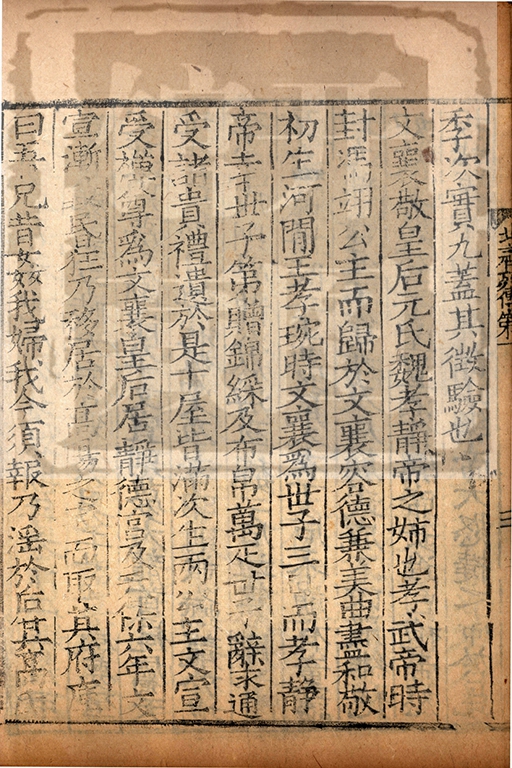 季次實九蓋其徵驗也
文襄敬皇后元氏魏孝靜帝之姉也孝武帝時
封馮翊公主而歸於文襄容德兼美曲盡和敬
初生河間王孝琬時文襄爲世子三日而孝靜
帝幸世子第贈錦綵及布帛萬疋世子辭求通
受諸貴禮遺於是十屋皆滿次生兩公主文宣
受禪尊爲文襄皇后居靜德宮及天保六年文
宣漸致昏狂乃移居於高陽之宅而取其府庫
曰吾兄昔姦我婦我今須報乃淫於后其高氏
北齊列傳第一